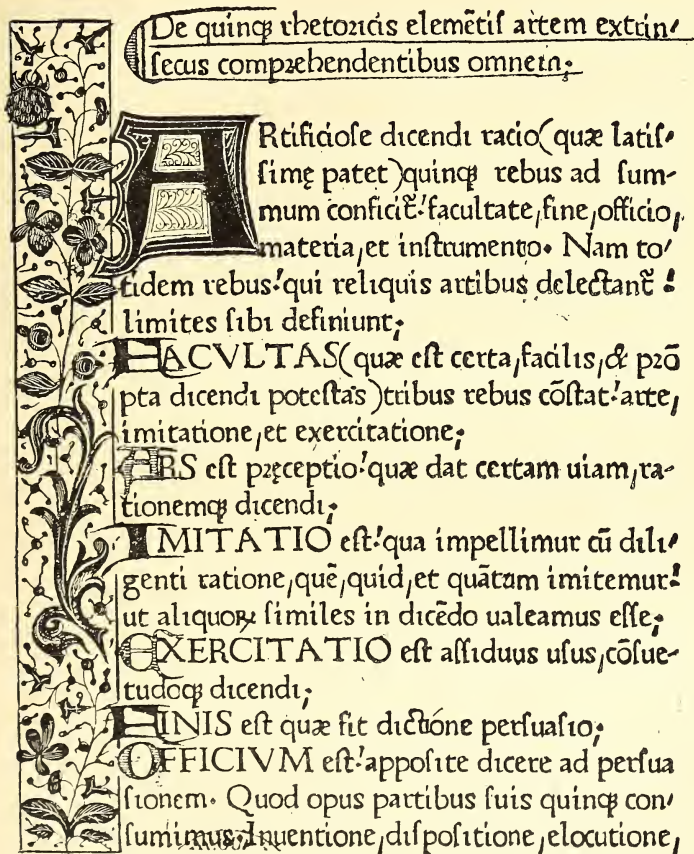 De quinqꝫ rhetoricis elemētiſ artem extrin⸗
ſecus comprehendentibus omnem;
ARtificioſe dicendi racio(quæ latiſ⸗
ſimę patet)quinqꝫ rebus ad ſum-
mum conficit̄: facultate, fine, officio,
materia, et inſtrumento. Nam to⸗
tidem rebus: qui reliquis artibus delectant̄ :
limites ſibi definiunt;
FACVLTAS(quæ eſt certa, facilis, & prō
pta dicendi poteſtas)tribus rebus cōſtat: arte,
imitatione, et exercitatione;
ARS eſt pręceptio: quæ dat certam uiam, ra-
tionemqꝫ dicendi;
IMITATIO eſt: qua impellimur cū dili⸗
genti ratione, quē, quid, et quātum imitemur:
ut aliquoꝝ ſimiles in dicēdo ualeamus eſſe;
EXERCITATIO eſt aſſiduus uſus, cōſue-
tudoqꝫ dicendi;
FINIS eſt quæ fit dictióne perſuaſio;
OFFICIVM eſt: appoſite dicere ad perſua
ſionem. Quod opus partibus ſuis quinqꝫ con⸗
ſumimus: Inuentione, diſpoſitione, elocutione,